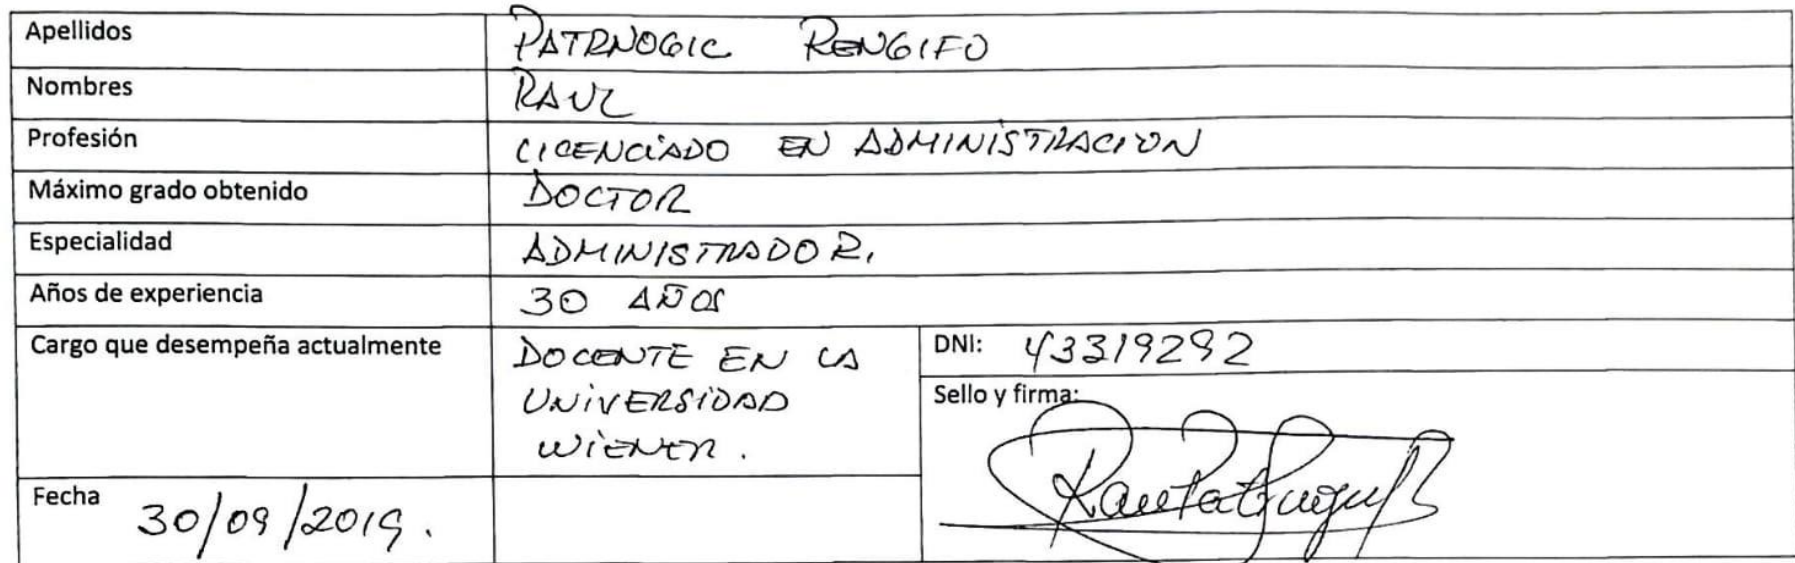 Apellidos PATRNOGIC RENGIFO
Nombres RAUL
Profesión LICENCIADO EN ADMINISTRACION
Máximo grado obtenido DOCTOR
Especialidad ADMINISTRADOR.
Años de experiencia 30 AÑOS
Cargo que desempeña actualmente DOCENTE EN LA
UNIVERSIDAD
WIENER.
DNI: 43319292
Sello y firma:
Fecha 30/09/2019.